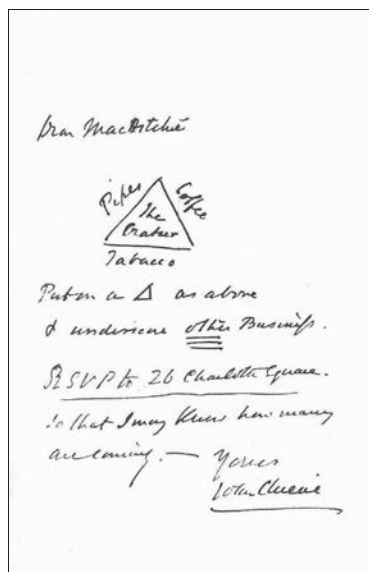 Dear MacRitchie
Pipes
Coffee
The
Cratur
Tabacco
Put on a Δ as above
& underscore other Business.
RSVP to 26 Charlotte Square.
So that I may Know how many
are coming. — Yours
John Chiene